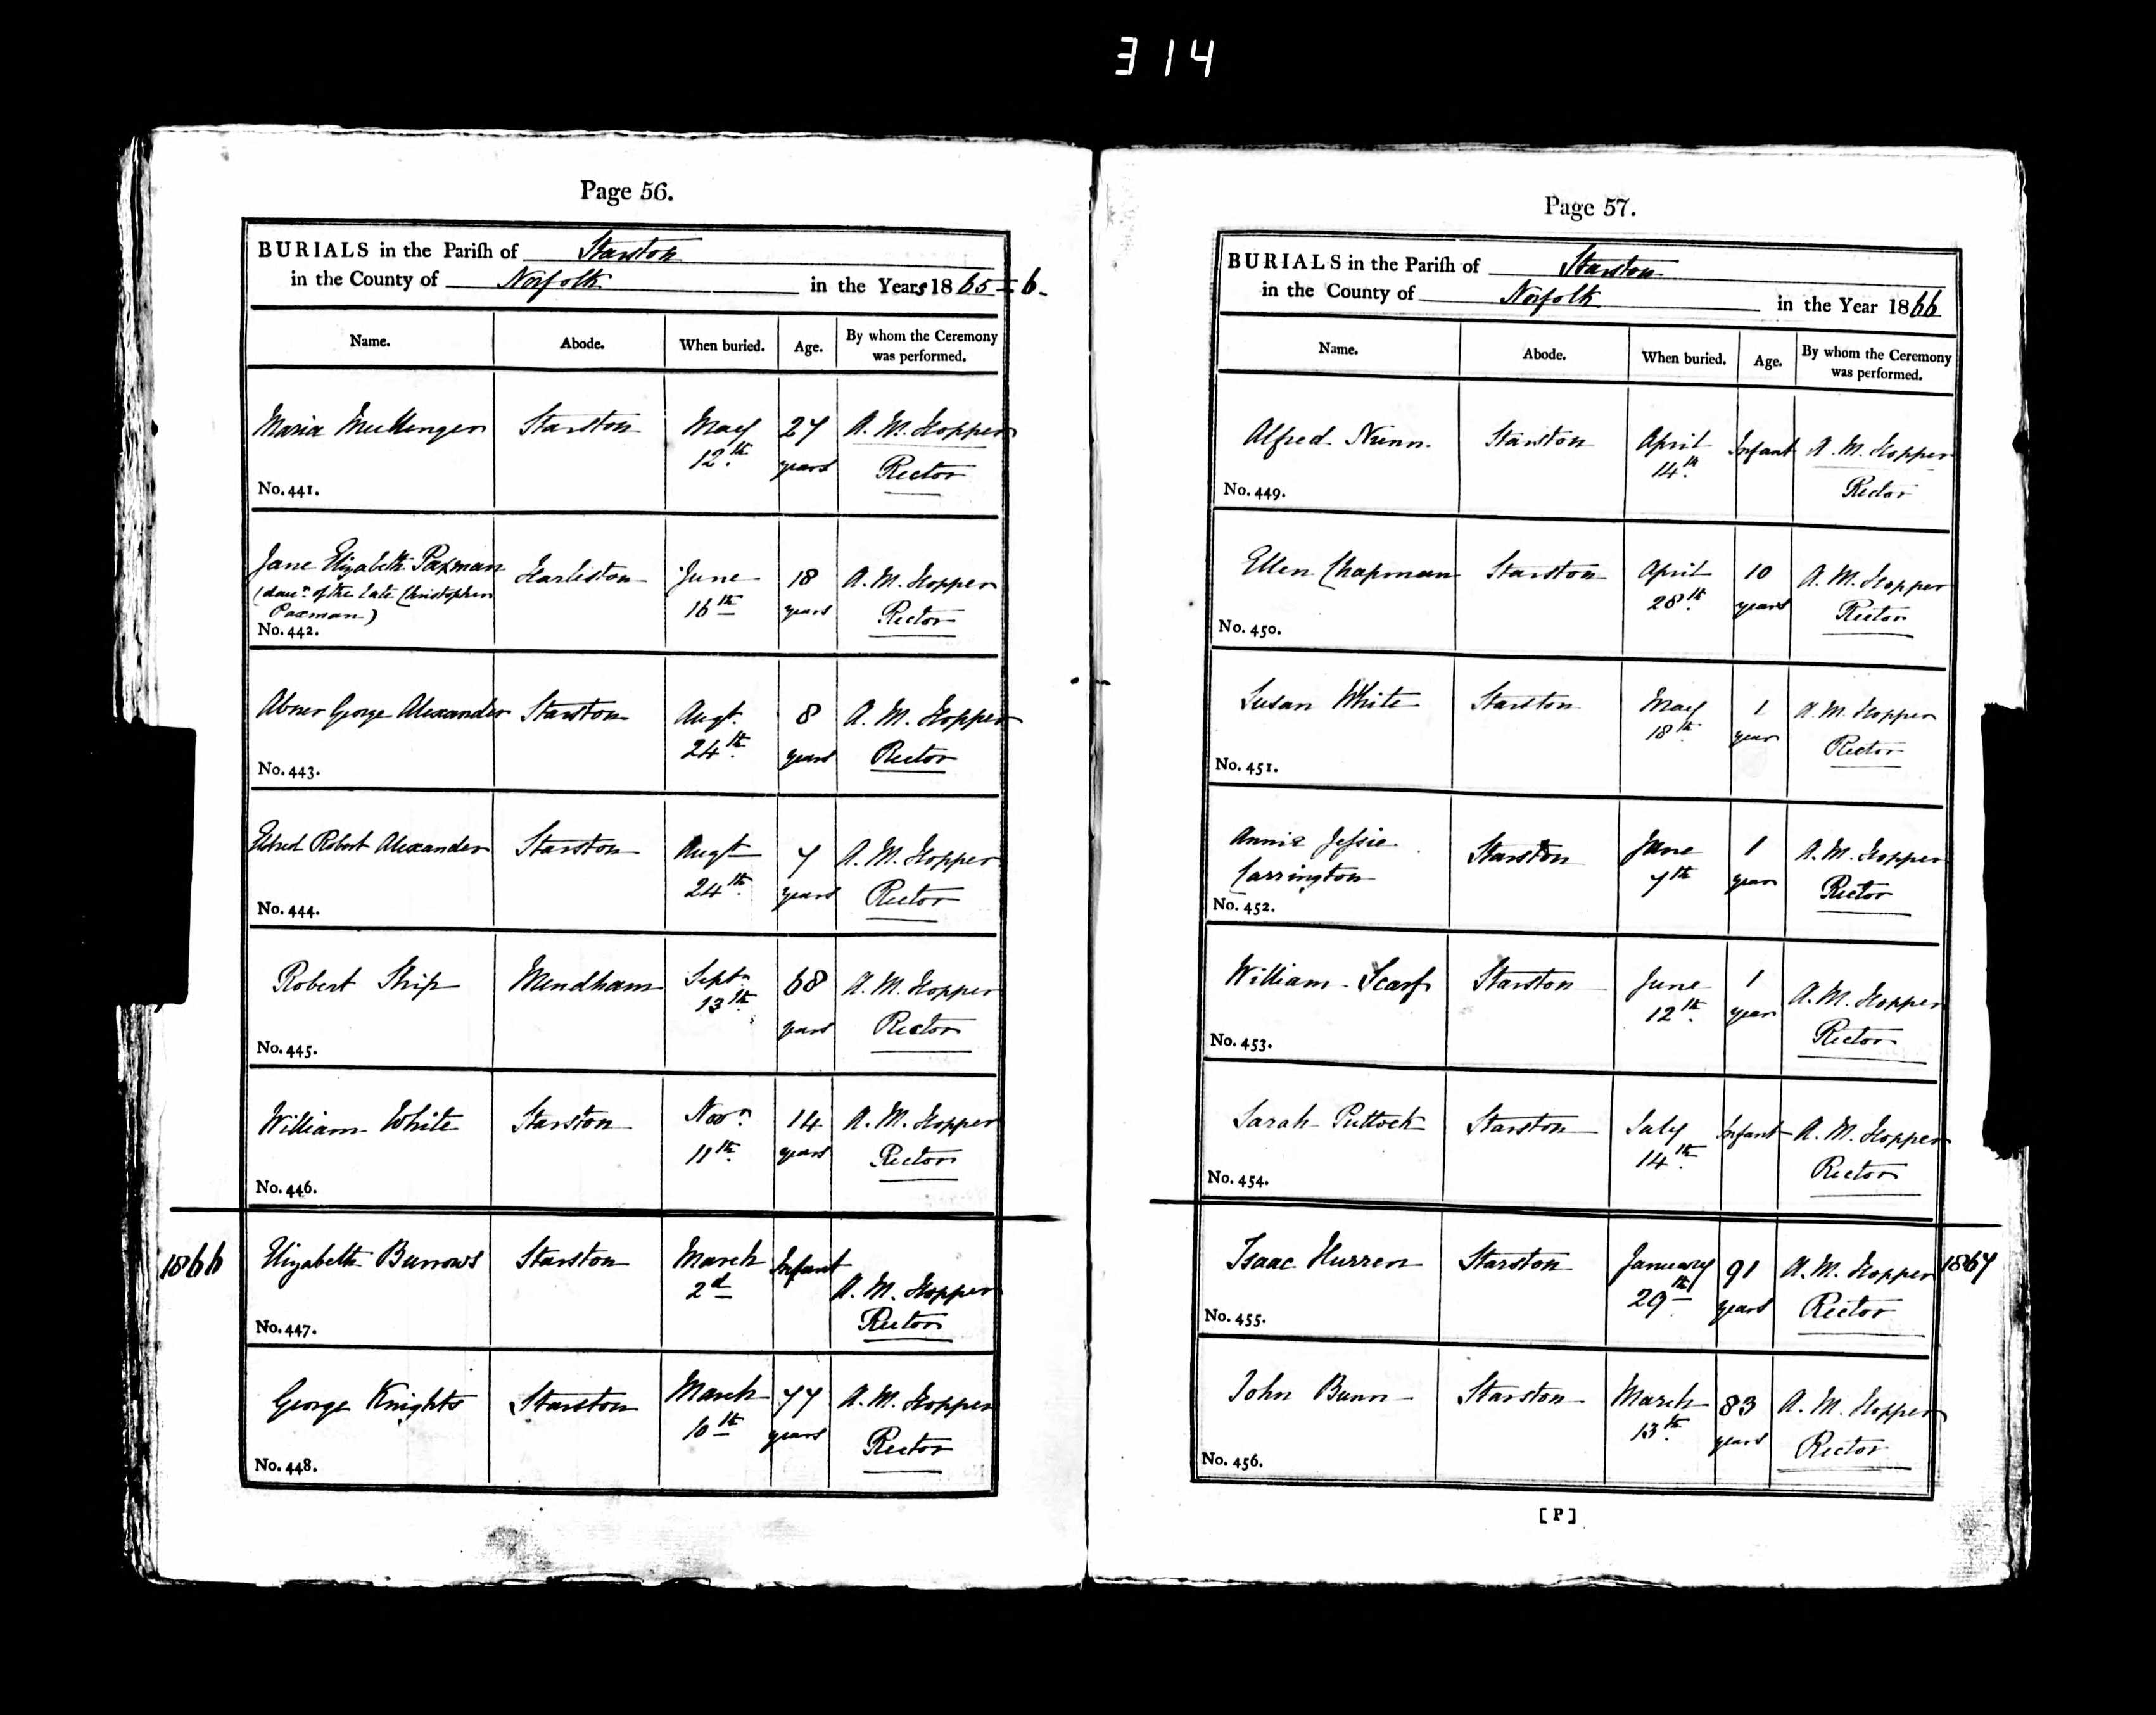 314
Page 56.
BURIALS in the Parish of Starston
in the County of Norfolk in the Years 1865-6-
Name. Abode. When buried. Age. By whom the Ceremony was performed.
Maria Mullenger Starston May 12th 27 years A. M. Hopper Rector
No. 441.
Jane Elizabeth Paxman (daur. of the late Christopher Paxman) Harleston June 16th 18 years A. M. Hopper Rector
No. 442.
Abner George Alexander Starston Augt. 24th 8 years A. M. Hopper Rector
No. 443.
Robert Alexander Starston Augt 24th 7 years A. M. Hopper Rector
No. 444.
Robert Skip Mendham Septr 13th 68 years A. M. Hopper Rector
No. 445.
William White Starston Novr. 11th 14 years A. M. Hopper Rector
No. 446.
1866 Elizabeth Burrows Starston March 2d Infant A. M. Hopper Rector
No. 447.
George Knights Starston March 10th 77 years A. M. Hopper Rector
No. 448.
Page 57.
BURIALS in the Parish of Starston
in the County of Norfolk in the Year 1866
Name. Abode. When buried. Age. By whom the Ceremony was performed.
Alfred Nunn. Starston April 14th Infant A. M. Hopper Rector
No. 449.
Ellen Chapman Starston April 28th 10 years A. M. Hopper Rector
No. 450.
Susan White Starston May 18th 1 year A. M. Hopper Rector
No. 451.
Annie Jessie Carrington Starston June 7th 1 year A. M. Hopper Rector
No. 452.
William Scarf Starston June 12th 1 year A. M. Hopper Rector
No. 453.
Sarah Puttock Starston July 14th Infant A. M. Hopper Rector
No. 454.
Isaac Hurren Starston January 29th 91 years A. M. Hopper Rector 1867
No. 455.
John Bunn Starston March 13th 83 years A. M. Hopper Rector
No. 456.
[P]